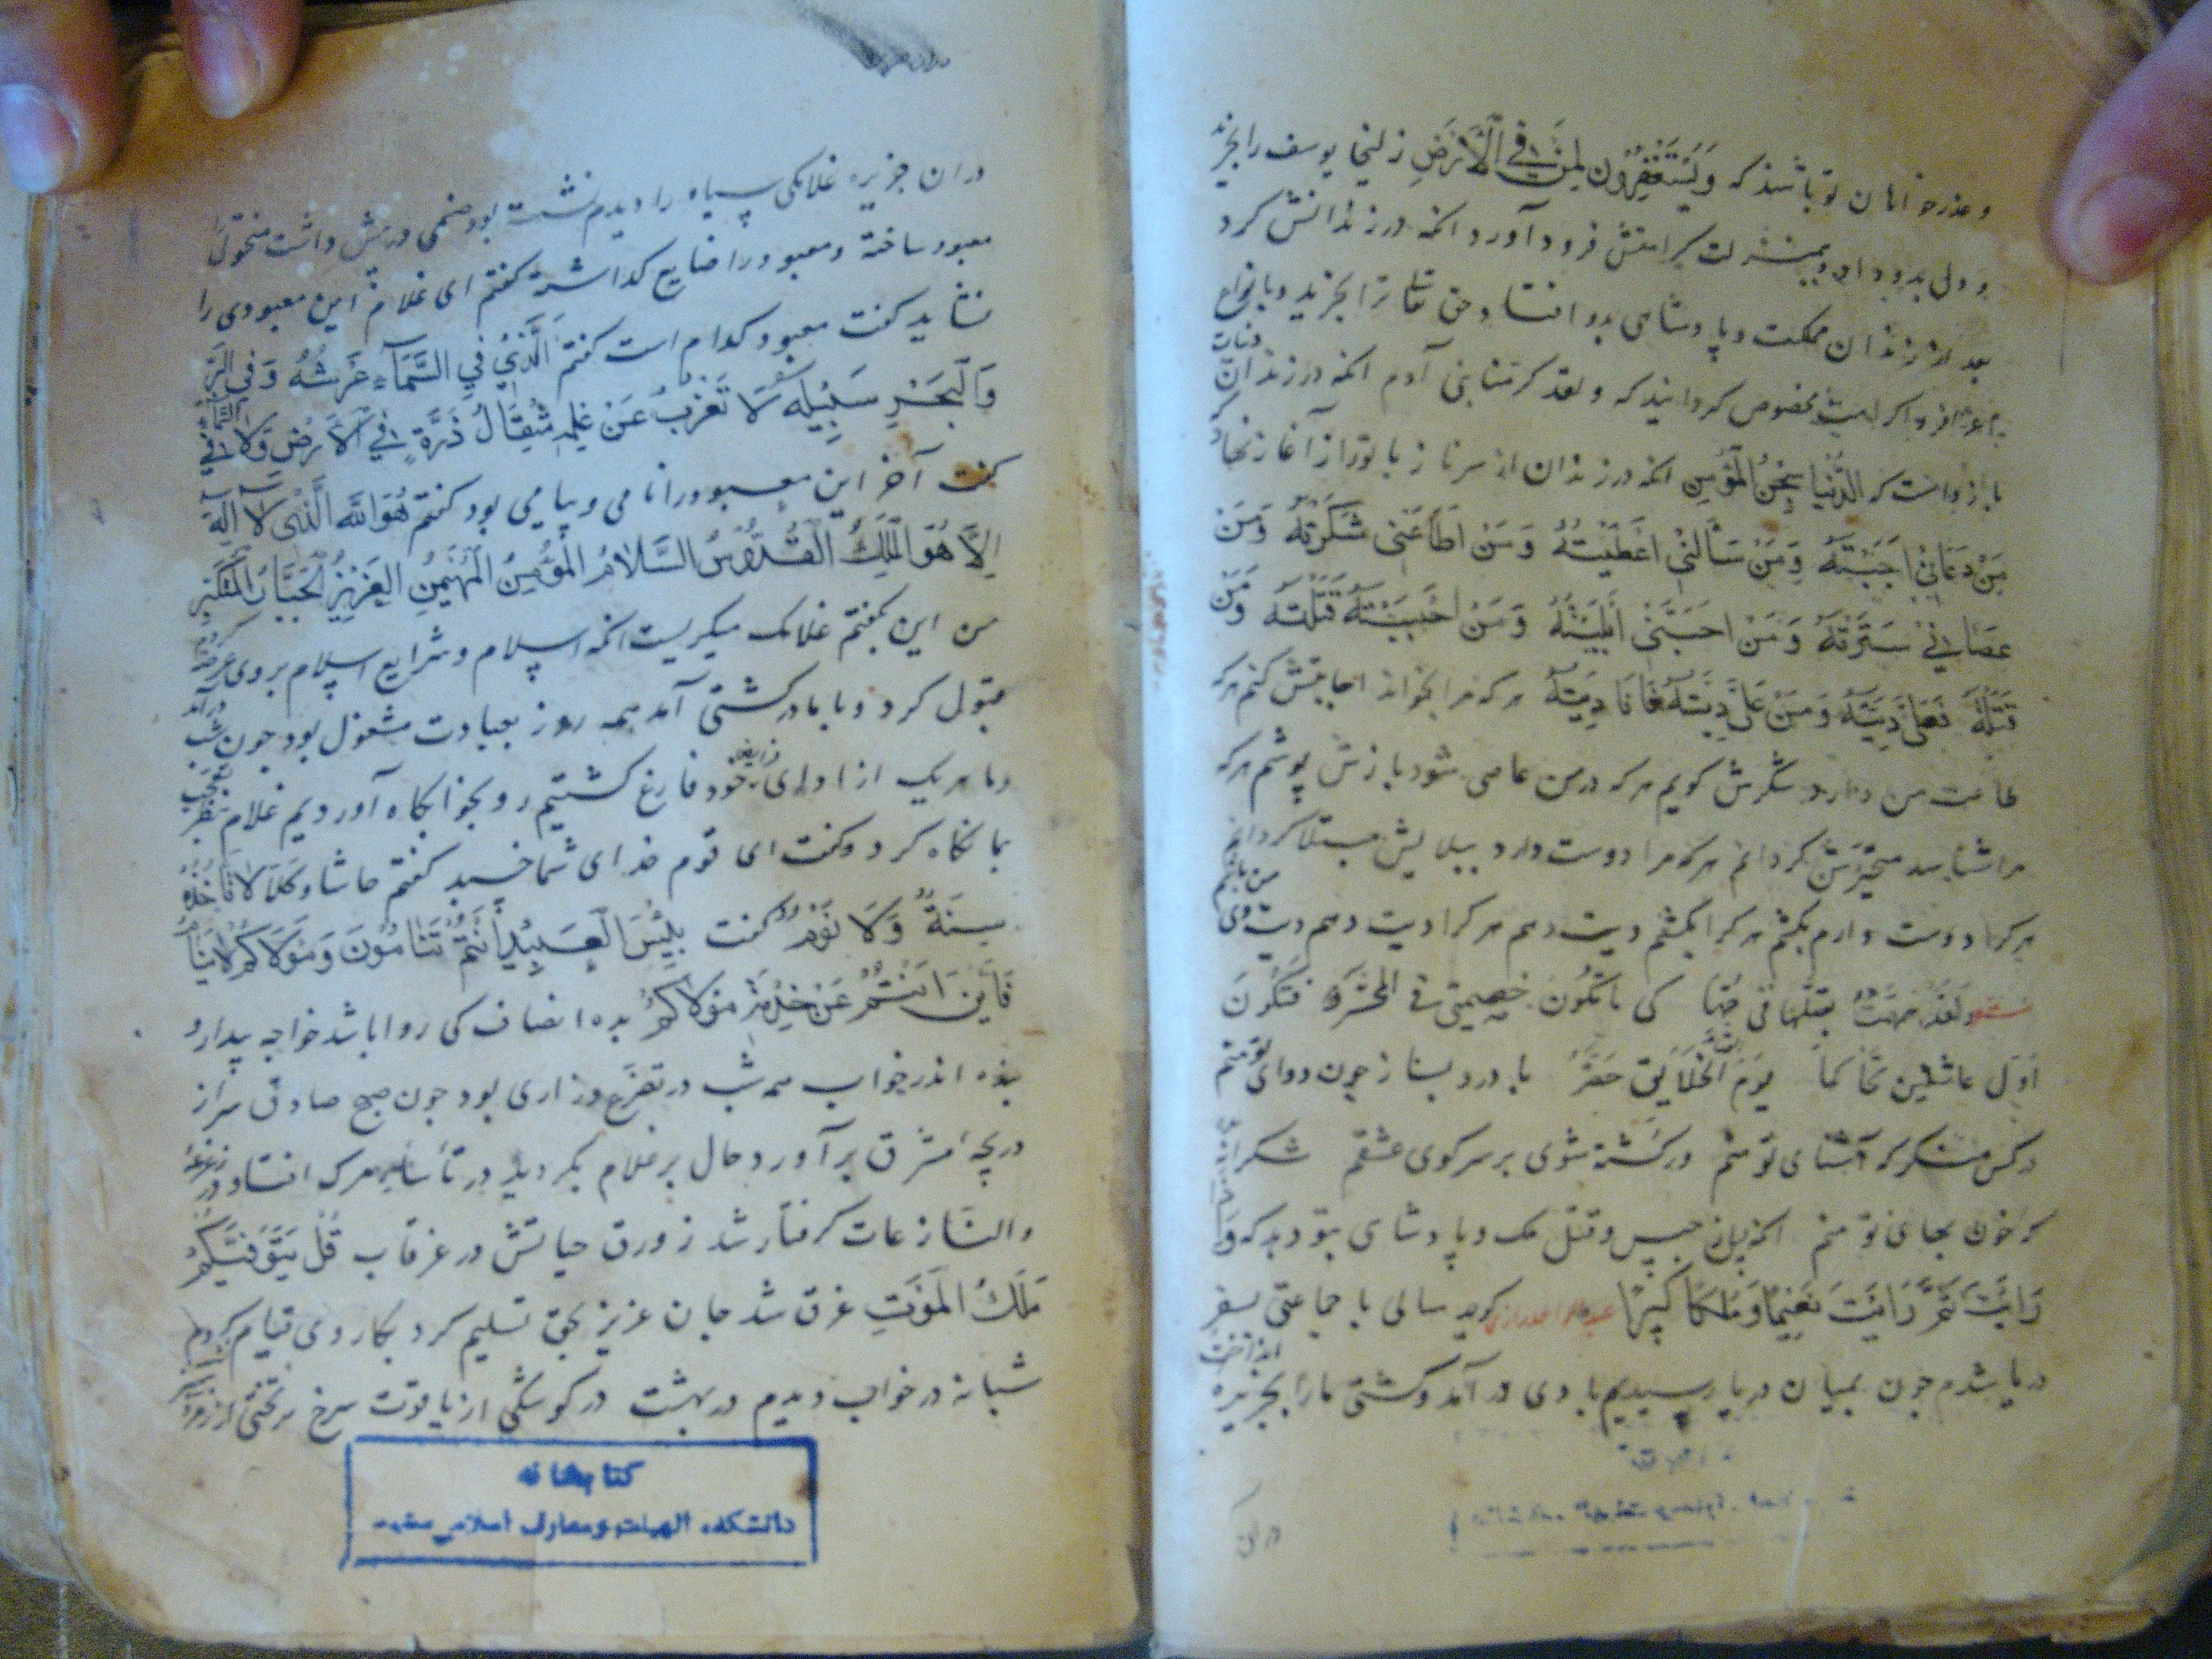 و عذرخواهان تو باشند که وَیَسْتَغْفِرُونَ لِمَنْ فِی الْأَرْضِ زلیخا یوسف را بخرید
و ولی بدو داد و بمنزلت کرامتش فرود آورد آنکه در زندانش کرد
بعد از زندان مملکت و پادشاهی بدو افتاد حق تعالی ترا بخرید و بانواع
کرامت مخصوص گردانید که و لقد کرمنا بنی آدم آنکه در زندان دنیات
باز داشت که الدُّنْیَا سِجْنُ الْمُؤْمِنِ آنکه در زندان از سر ناز با تو راز آغاز نهاد که
مَنْ دَعَانِی اَجَبْتَهُ وَمَنْ سَالَنِی اَعْطَیْتُهُ وَمَنْ اَطَاعَنِی شَکَرْتُهُ وَمَنْ
عَصَانِی سَتَرْتُهُ وَمَنْ اَحَبَّنِی اَبْلَیْتُهُ وَمَنْ اَحْبَبْتُهُ قَتَلْتُهُ وَمَنْ
قَتَلْتُهُ فَعَلَیَّ دِیَتُهُ وَمَنْ عَلَیَّ دِیَتُهُ فَانَا دِیَتُهُ هر که مرا بخواند اجابتش کنم هر که
طاعت من دارد شکرش کویم هر که در من عاصی شود بازش پوشم هر که
مرا شناسد متحیرش گردانم هر که مرا دوست دارد ببلایش مبتلا گردانم
هر کرا دوست دارم بکشم هر کرا بکشم دیت دهم هر کرا دیت دهم دیت وی من باشم
و لقد هممت بقتلها فی حبها کی ما تکون خصیمتی فی المحشر فتکون
اول عاشقین تحاکما یوم الخلایق با درد بساز چون دوای تو منم
در کس منکر که آشنای تو منم ور کشته شوی بر سر کوی عشقم شکرانه
که خون بهای تو منم آنکه پس از حبس و قتل ملک و پادشاهی بتو دهد که وَاِذَا
رَاَیْتَ ثَمَّ رَاَیْتَ نَعِیمًا وَمُلْکًا کَبِیرًا کوید سالی با جماعتی بسفر
دریا شدم چون بمیان دریا رسیدیم بادی در آمد و کشتی ما را بجزیره انداخت
دران
دران جزیره غلامکی سیاه را دیدم نشسته بود صنمی در پیش داشت منحوتی
معبود ساخته و معبود را ضایع کداشته کفتم ای غلام این معبودی را
نشاید کفت معبود کدام است کفتم اَلَّذِی فِی السَّمَاءِ عَرْشُهُ وَفِی الْبَرِّ
وَالْبَحْرِ سَبِیلُهُ لَا تَعْزُبُ عَنْ عِلْمِهِ مِثْقَالُ ذَرَّةٍ فِی الْاَرْضِ وَلَا فِی السَّمَاءِ
کفت آخر این معبود را نامی و پیامی بود کفتم هُوَ اللهُ الَّذِی لَا اِلَهَ
اِلَّا هُوَ الْمَلِکُ الْقُدُّوسُ السَّلَامُ الْمُؤْمِنُ الْمُهَیْمِنُ الْعَزِیزُ الْجَبَّارُ الْمُتَکَبِّرُ
من این بکفتم غلامک میکریست آنکه اسلام و شرایع اسلام بر وی عرضه کردم
قبول کرد و با ما در کشتی آمد همه روز بعبادت مشغول بود چون شب درآمد
و ما هر یک از ادای فرایض خود فارغ کشتیم رو بخوابکاه آوردیم غلام بنظر تعجب
بما نکاه کرد و کفت ای قوم خدای شما خسبد کفتم حاشا و کلا لَا تَاْخُذُهُ
سِنَةٌ وَلَا نَوْمٌ کفت بِئْسَ الْعَبِیدُ اَنْتُمْ تَنَامُونَ وَمَوْلَاکُمْ لَا یَنَامُ
فَاَیْنَ اَنْتُمْ عَنْ خِدْمَةِ مَوْلَاکُمْ بده انصاف کی روا باشد خواجه بیدار و
بنده اندر خواب همه شب در تضرع و زاری بود چون صبح صادق سر از
دریچهٔ مشرق برآورد حال بر غلام بکردید در مرک افتاد و در
والنازعات کرفتار شد زورق حیاتش در غرقاب قُلْ یَتَوَفّیکُمْ
مَلَکُ الْمَوْتِ غرق شد جان عزیز بحق تسلیم کرد بکار وی قیام کردم
شبانه در خواب دیدم در بهشت در کوشکی از یاقوت سرخ بر تختی از زمرد
کتابخانه
دانشکده الهیات و معارف اسلامی مشهد